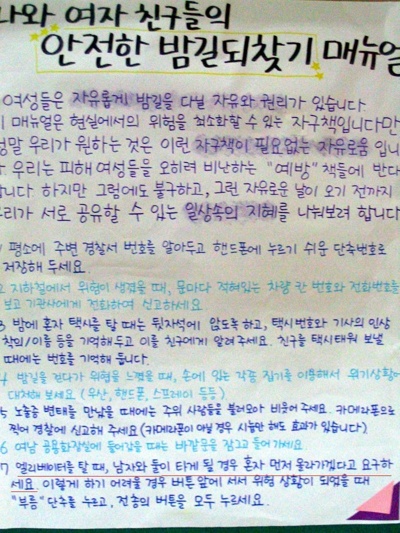 나와 여자 친구들의
안전한 밤길되찾기 매뉴얼
여성들은 자유롭게 밤길을 다닐 자유와 권리가 있습니다
이 매뉴얼은 현실에서의 위험을 최소화할 수 있는 자구책입니다만
정말 우리가 원하는 것은 이런 자구책이 필요없는 자유로움 입니
다 우리는 피해여성들을 오히려 비난하는 "예방"책들에 반대
합니다 하지만 그럼에도 불구하고, 그런 자유로운 날이 오기 전까지
우리가 서로 공유할 수 있는 일상속의 지혜를 나눠보려 합니다
1 평소에 주변 경찰서 번호를 알아두고 핸드폰에 누르기 쉬운 단축번호로
저장해 두세요.
2 지하철에서 위험이 생겼을 때, 문마다 적혀있는 차량 칸 번호와 전화번호를
보고 기관사에게 전화하여 신고하세요.
3 밤에 혼자 택시를 탈 때는 뒷자석에 앉도록 하고, 택시번호와 기사의 인상
착의/이름 등을 기억해두고 이를 친구에게 알려주세요. 친구를 택시태워 보낼
때에는 번호를 기억해 둡니다.
4 밤길을 걷다가 위협을 느꼈을 때, 손에 있는 각종 집기를 이용해서 위기상황에
대처해 보세요. (우산, 핸드폰, 스프레이 등등)
5 노출증 변태를 만났을 때에는 주위 사람들을 불러모아 비웃어 주세요. 카메라폰으로
찍어 경찰에 신고해 주세요 (카메라폰이 아닐 경우 시늉만 해도 효과가 있습니다)
6 여남 공용화장실에 들어갔을 때는 바깥문을 잠그고 들어가세요.
7 엘리베이터를 탈 때, 남자와 둘이 타게 될 경우 혼자 먼저 올라가겠다고 요구하
세요. 이렇게 하기 어려울 경우 버튼 앞에 서서 위험 상황이 되었을 때
"부릉" 단추를 누르고, 전층의 버튼을 모두 누르세요.